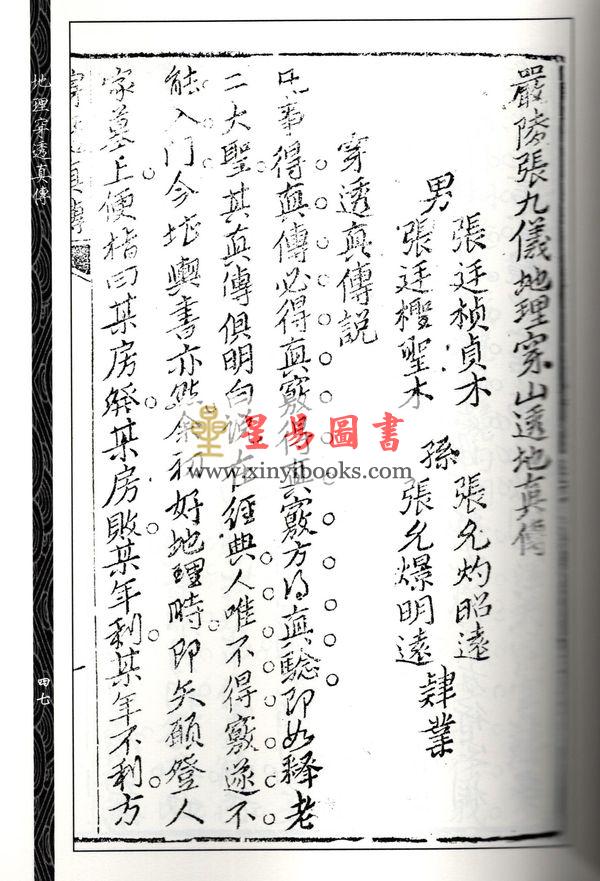 嚴陵張九儀地理穿山透地真傳
張廷楨貞木 張允灼昭遠
男 孫 肄業
張廷櫻聖木 張允爆明遠
穿透真傳説
凡事得真傳必得真竅得真竅方得真驗即如釋老
二大聖其真傳俱明白 在經典人唯不得竅遂不
能入门今堪輿書亦然余初好地理時即矢願登人
家墓上便指曰某房發某房敗某年利某年不利方
地理穿透真傳
四七
星易圖書
www.xinyibooks.com